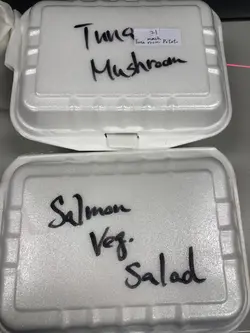 Tuna
Mushroom
Salmon
Veg.
Salad